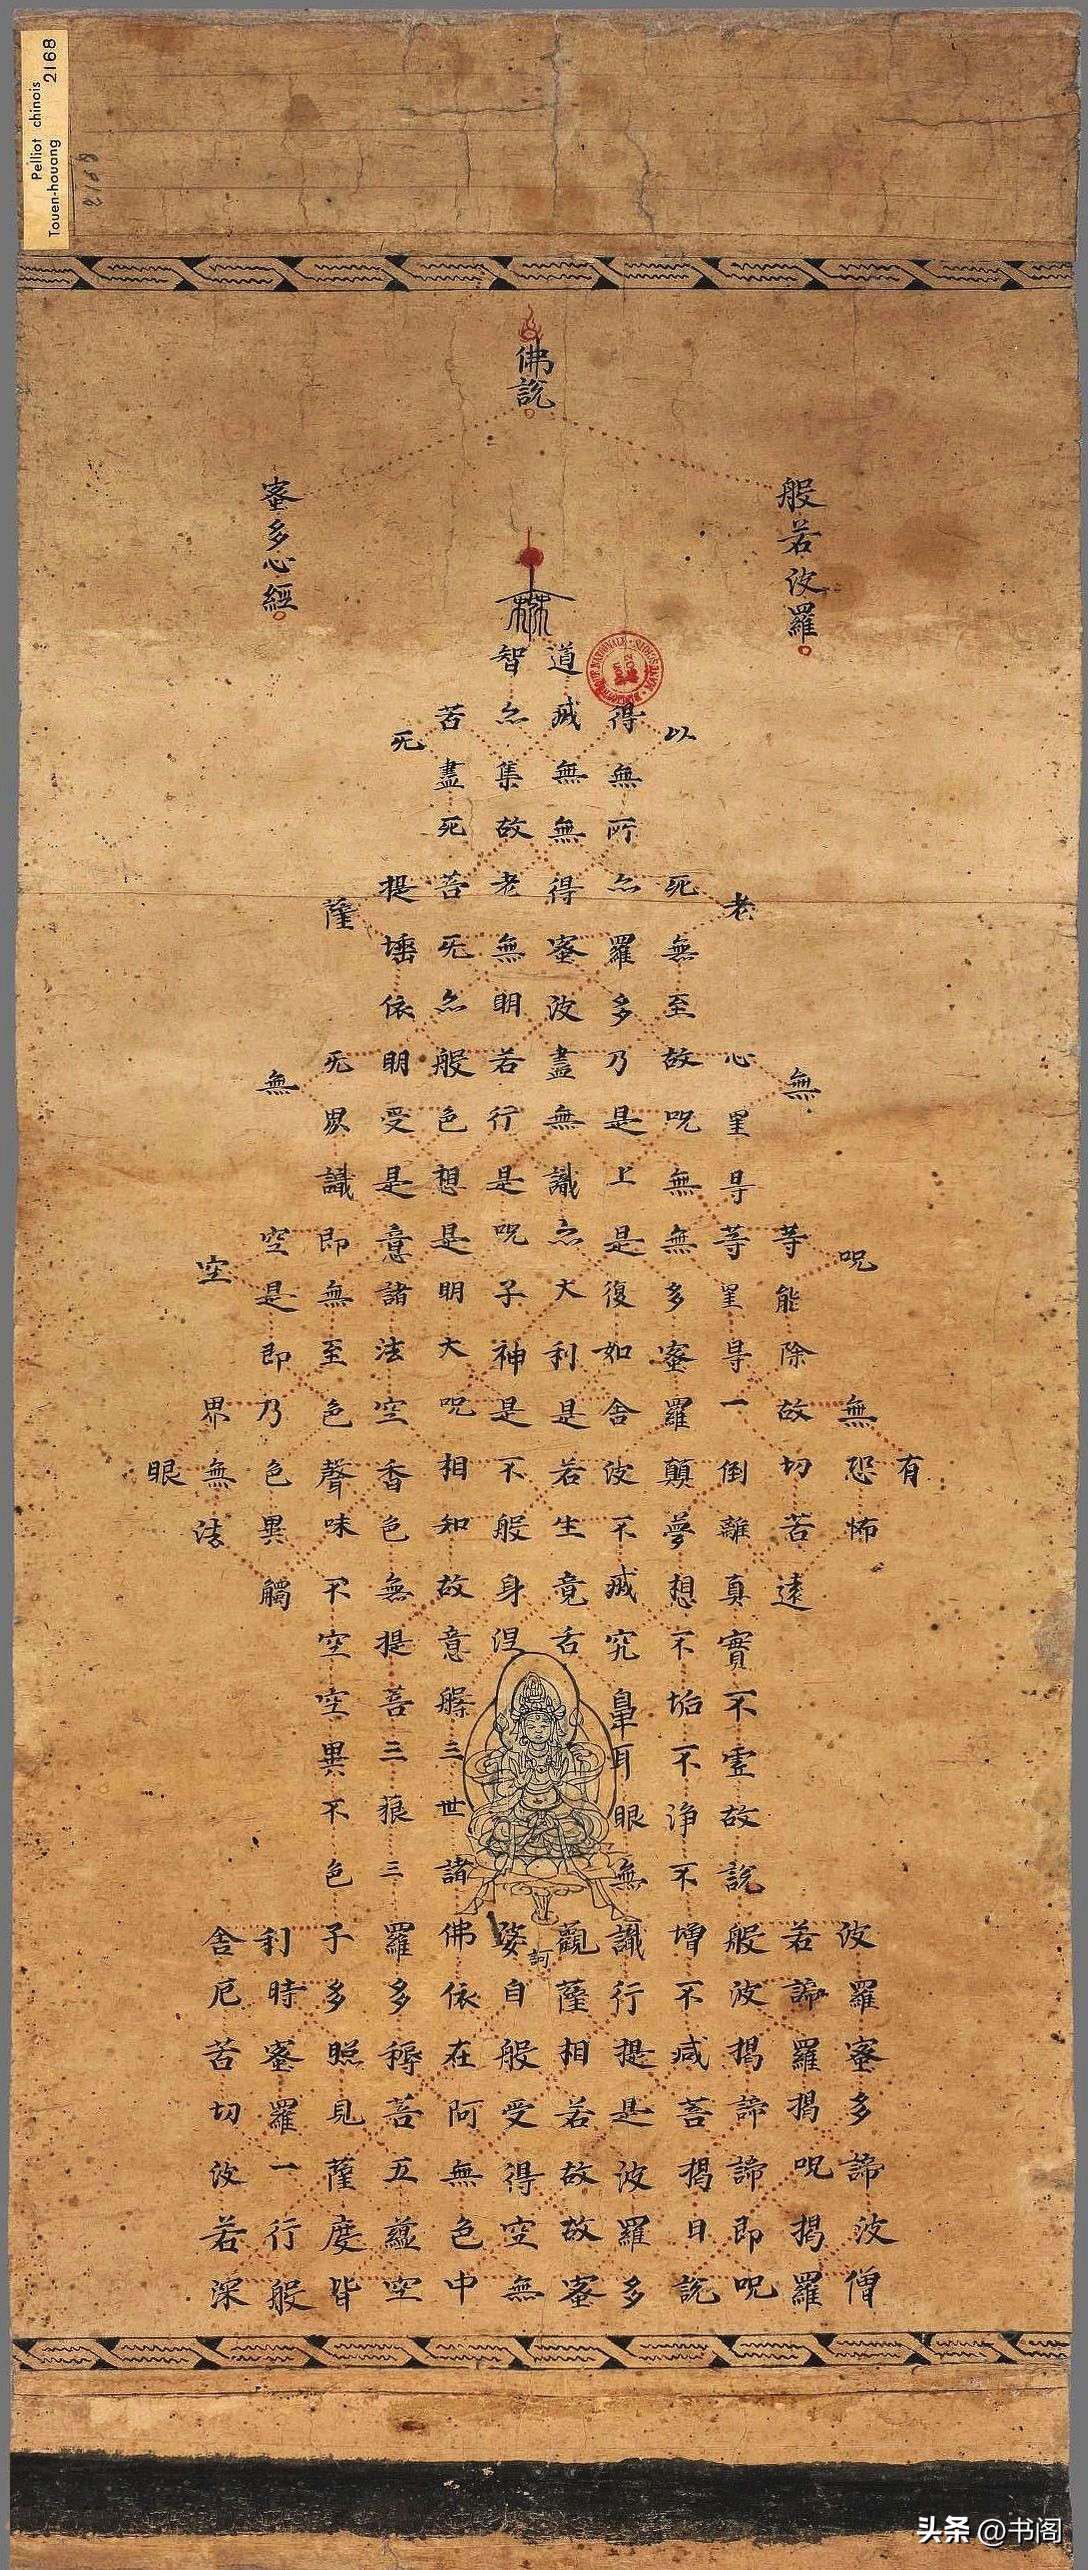 Pelliot chinois
Touen-houang 2168
佛說
般若波羅
蜜多心經
有
呪無恐怖波羅蜜多諦波僧
無等能除故切苦遠若諦羅揭呪揭羅
老心罣㝵等罣㝵一倒離真實不虛故說般波揭諦諦即呪
以死無至故呪無無多蜜羅顛夢想不垢不淨不增不減菩揭曰說
得無所亦羅多乃是上是復如舍波不滅究鼻耳眼無識行提是波羅多
道滅無無得蜜波盡無識亦大利是若生竟舌觀薩相若故故蜜
訶
智亦集故老無明若行是呪子神是不般身涅娑自般受得空無
苦盡死菩旡亦般色想是明大呪相和故意槃三世諸佛依在阿無色中
旡提埵依明受是意諸法空香色無提菩三藐三羅多稱菩五蘊空
薩旡界識即無至色聲味不空空異不色子多照見薩度皆
無空是即乃色異觸利時蜜羅一行般
空界無法舍厄苦切波若深
眼
头条 @书阁